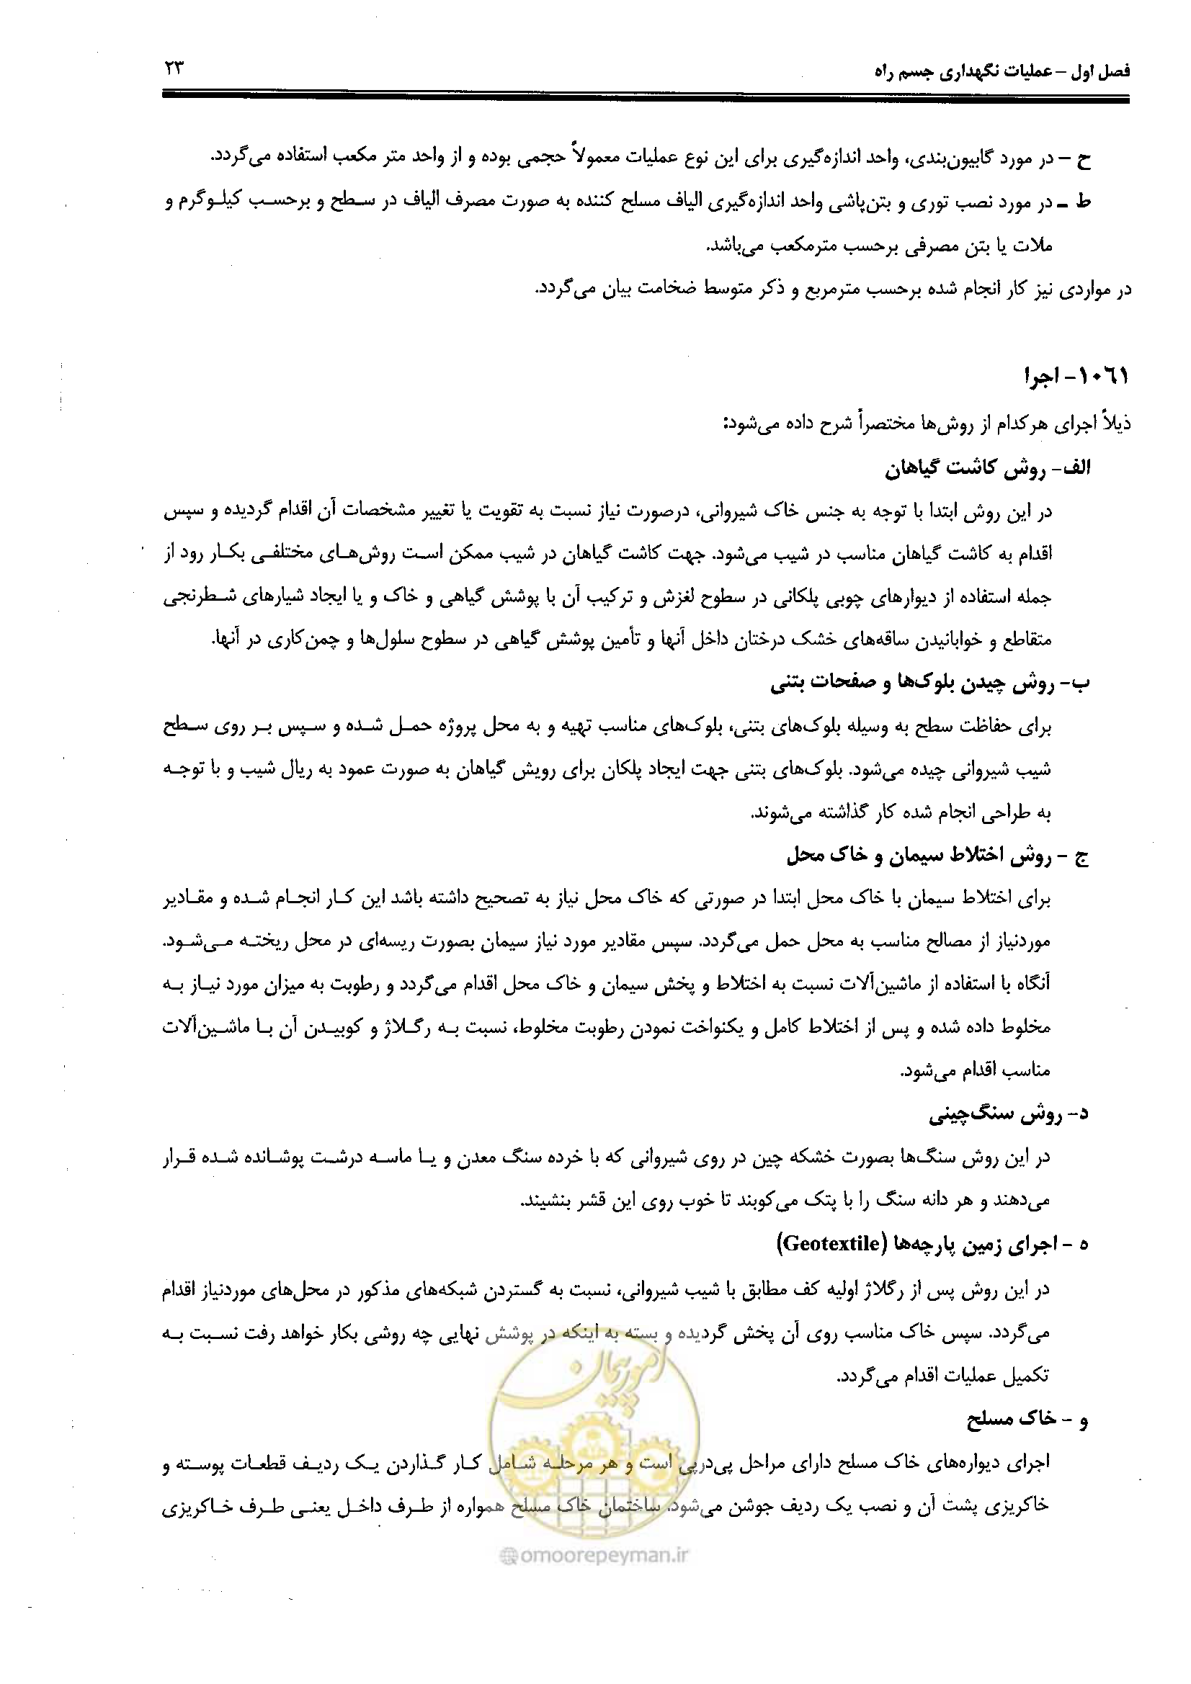 فصل اول – عملیات نگهداری جسم راه
۲۳
ح – در مورد گابیون‌بندی، واحد اندازه‌گیری برای این نوع عملیات معمولاً حجمی بوده و از واحد متر مکعب استفاده می‌گردد.
ط – در مورد نصب توری و بتن‌پاشی واحد اندازه‌گیری الیاف مسلح کننده به صورت مصرف الیاف در سطح و برحسب کیلوگرم و
ملات یا بتن مصرفی برحسب مترمکعب می‌باشد.
در مواردی نیز کار انجام شده برحسب مترمربع و ذکر متوسط ضخامت بیان می‌گردد.
۱۰۶۱- اجرا
ذیلاً اجرای هرکدام از روش‌ها مختصراً شرح داده می‌شود:
الف- روش کاشت گیاهان
در این روش ابتدا با توجه به جنس خاک شیروانی، درصورت نیاز نسبت به تقویت یا تغییر مشخصات آن اقدام گردیده و سپس
اقدام به کاشت گیاهان مناسب در شیب می‌شود. جهت کاشت گیاهان در شیب ممکن است روش‌های مختلفی بکار رود از
جمله استفاده از دیوارهای چوبی پلکانی در سطوح لغزش و ترکیب آن با پوشش گیاهی و خاک و یا ایجاد شیارهای شطرنجی
متقاطع و خوابانیدن ساقه‌های خشک درختان داخل آنها و تأمین پوشش گیاهی در سطوح سلول‌ها و چمن‌کاری در آنها.
ب- روش چیدن بلوک‌ها و صفحات بتنی
برای حفاظت سطح به وسیله بلوک‌های بتنی، بلوک‌های مناسب تهیه و به محل پروژه حمل شده و سپس بر روی سطح
شیب شیروانی چیده می‌شود. بلوک‌های بتنی جهت ایجاد پلکان برای رویش گیاهان به صورت عمود به ریال شیب و با توجه
به طراحی انجام شده کار گذاشته می‌شوند.
ج – روش اختلاط سیمان و خاک محل
برای اختلاط سیمان با خاک محل ابتدا در صورتی که خاک محل نیاز به تصحیح داشته باشد این کار انجام شده و مقادیر
موردنیاز از مصالح مناسب به محل حمل می‌گردد. سپس مقادیر مورد نیاز سیمان بصورت ریسه‌ای در محل ریخته می‌شود.
آنگاه با استفاده از ماشین‌آلات نسبت به اختلاط و پخش سیمان و خاک محل اقدام می‌گردد و رطوبت به میزان مورد نیاز به
مخلوط داده شده و پس از اختلاط کامل و یکنواخت نمودن رطوبت مخلوط، نسبت به رگلاژ و کوبیدن آن با ماشین‌آلات
مناسب اقدام می‌شود.
د- روش سنگ‌چینی
در این روش سنگ‌ها بصورت خشکه چین در روی شیروانی که با خرده سنگ معدن و یا ماسه درشت پوشانده شده قرار
می‌دهند و هر دانه سنگ را با پتک می‌کوبند تا خوب روی این قشر بنشیند.
ه – اجرای زمین پارچه‌ها (Geotextile)
در این روش پس از رگلاژ اولیه کف مطابق با شیب شیروانی، نسبت به گستردن شبکه‌های مذکور در محل‌های موردنیاز اقدام
می‌گردد. سپس خاک مناسب روی آن پخش گردیده و بسته به اینکه در پوشش نهایی چه روشی بکار خواهد رفت نسبت به
تکمیل عملیات اقدام می‌گردد.
و – خاک مسلح
اجرای دیواره‌های خاک مسلح دارای مراحل پی‌درپی است و هر مرحله شامل کار گذاردن یک ردیف قطعات پوسته و
خاکریزی پشت آن و نصب یک ردیف جوشن می‌شود. ساختمان خاک مسلح همواره از طرف داخل یعنی طرف خاکریزی
امور پیمان
@omoorepeyman.ir